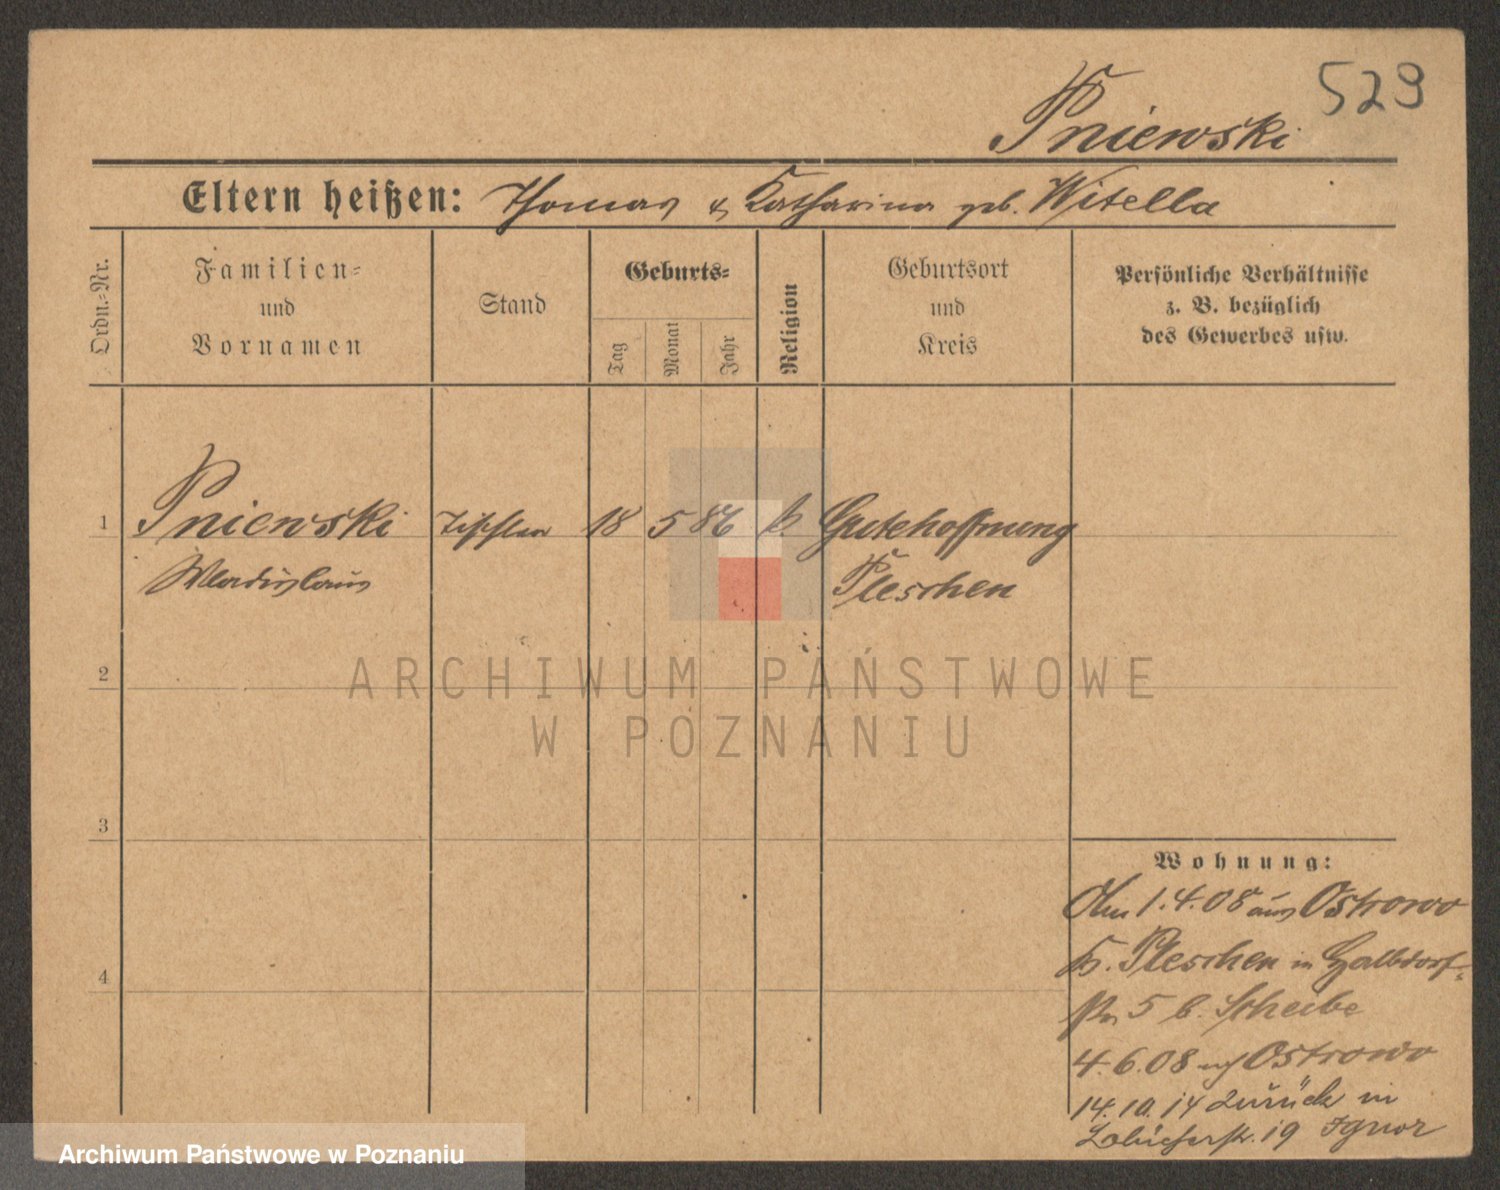 529
Pniewski
Eltern heißen: Thomas & Katharina geb. Witella
Ordn.-Nr.
Familien-
und
Vornamen
Stand
Geburts-
Tag
Monat
Jahr
Religion
Geburtsort
und
Kreis
Persönliche Verhältnisse
z. B. bezüglich
des Gewerbes usw.
1 Pniewski Tischler 18 5 86 k. Gutehoffnung
Wladislaus Pleschen
2
3
4
Wohnung:
Am 1.4.08 aus Ostrowo
K. Pleschen in Halbdorf-
str 5 b. Scheibe
4.6.08 nach Ostrowo
14.10.14 zurück in
19
ARCHIWUM PAŃSTWOWE
W POZNANIU
Archiwum Państwowe w Poznaniu